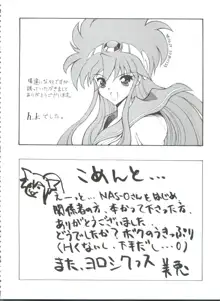 僕達になりますが
誘っていただきまして
ありがとうございます。
以上でした。
こめんと…
えーっと… NAS-Oさんをはじめ、
関係者の方、本かって下さった方、
ありがとうございました。
どうでしたか？ボクのうきっぷり
(Hくないし、下手だし…○)
また、ヨロシクっス